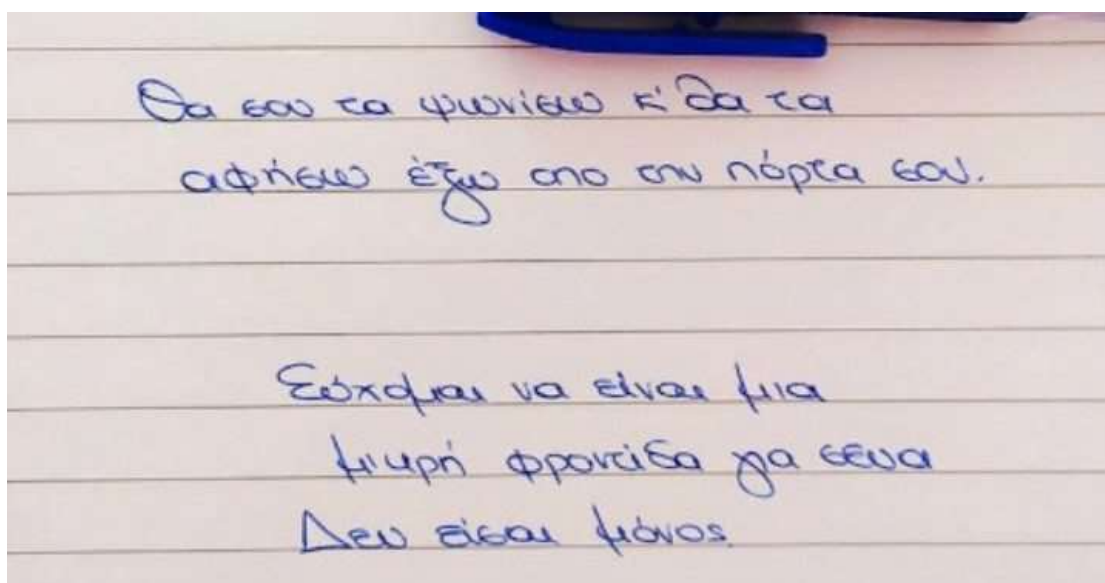 Θα σου τα ψωνίσω κ' θα τα
αφήσω έξω απο την πόρτα σου.
Εύχομαι να είναι μια
μικρή φροντίδα για σένα
Δεν είσαι μόνος.